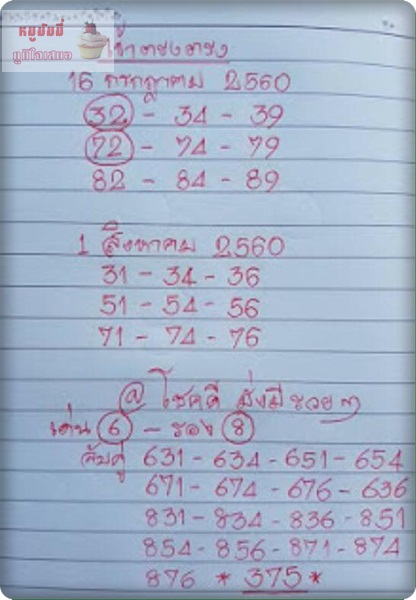 หมูขัมมี่
ภูมิใจเสนอ
16 กรกฎาคม 2560
32 - 34 - 39
72 - 74 - 79
82 - 84 - 89
1 สิงหาคม 2560
31 - 34 - 36
51 - 54 - 56
71 - 74 - 76
@ โชคดี มั่งมี รวยๆ
เด่น 6 - รอง 8
จับคู่ 631 - 634 - 651 - 654
671 - 674 - 676 - 636
831 - 834 - 836 - 851
854 - 856 - 871 - 874
876 * 375 *